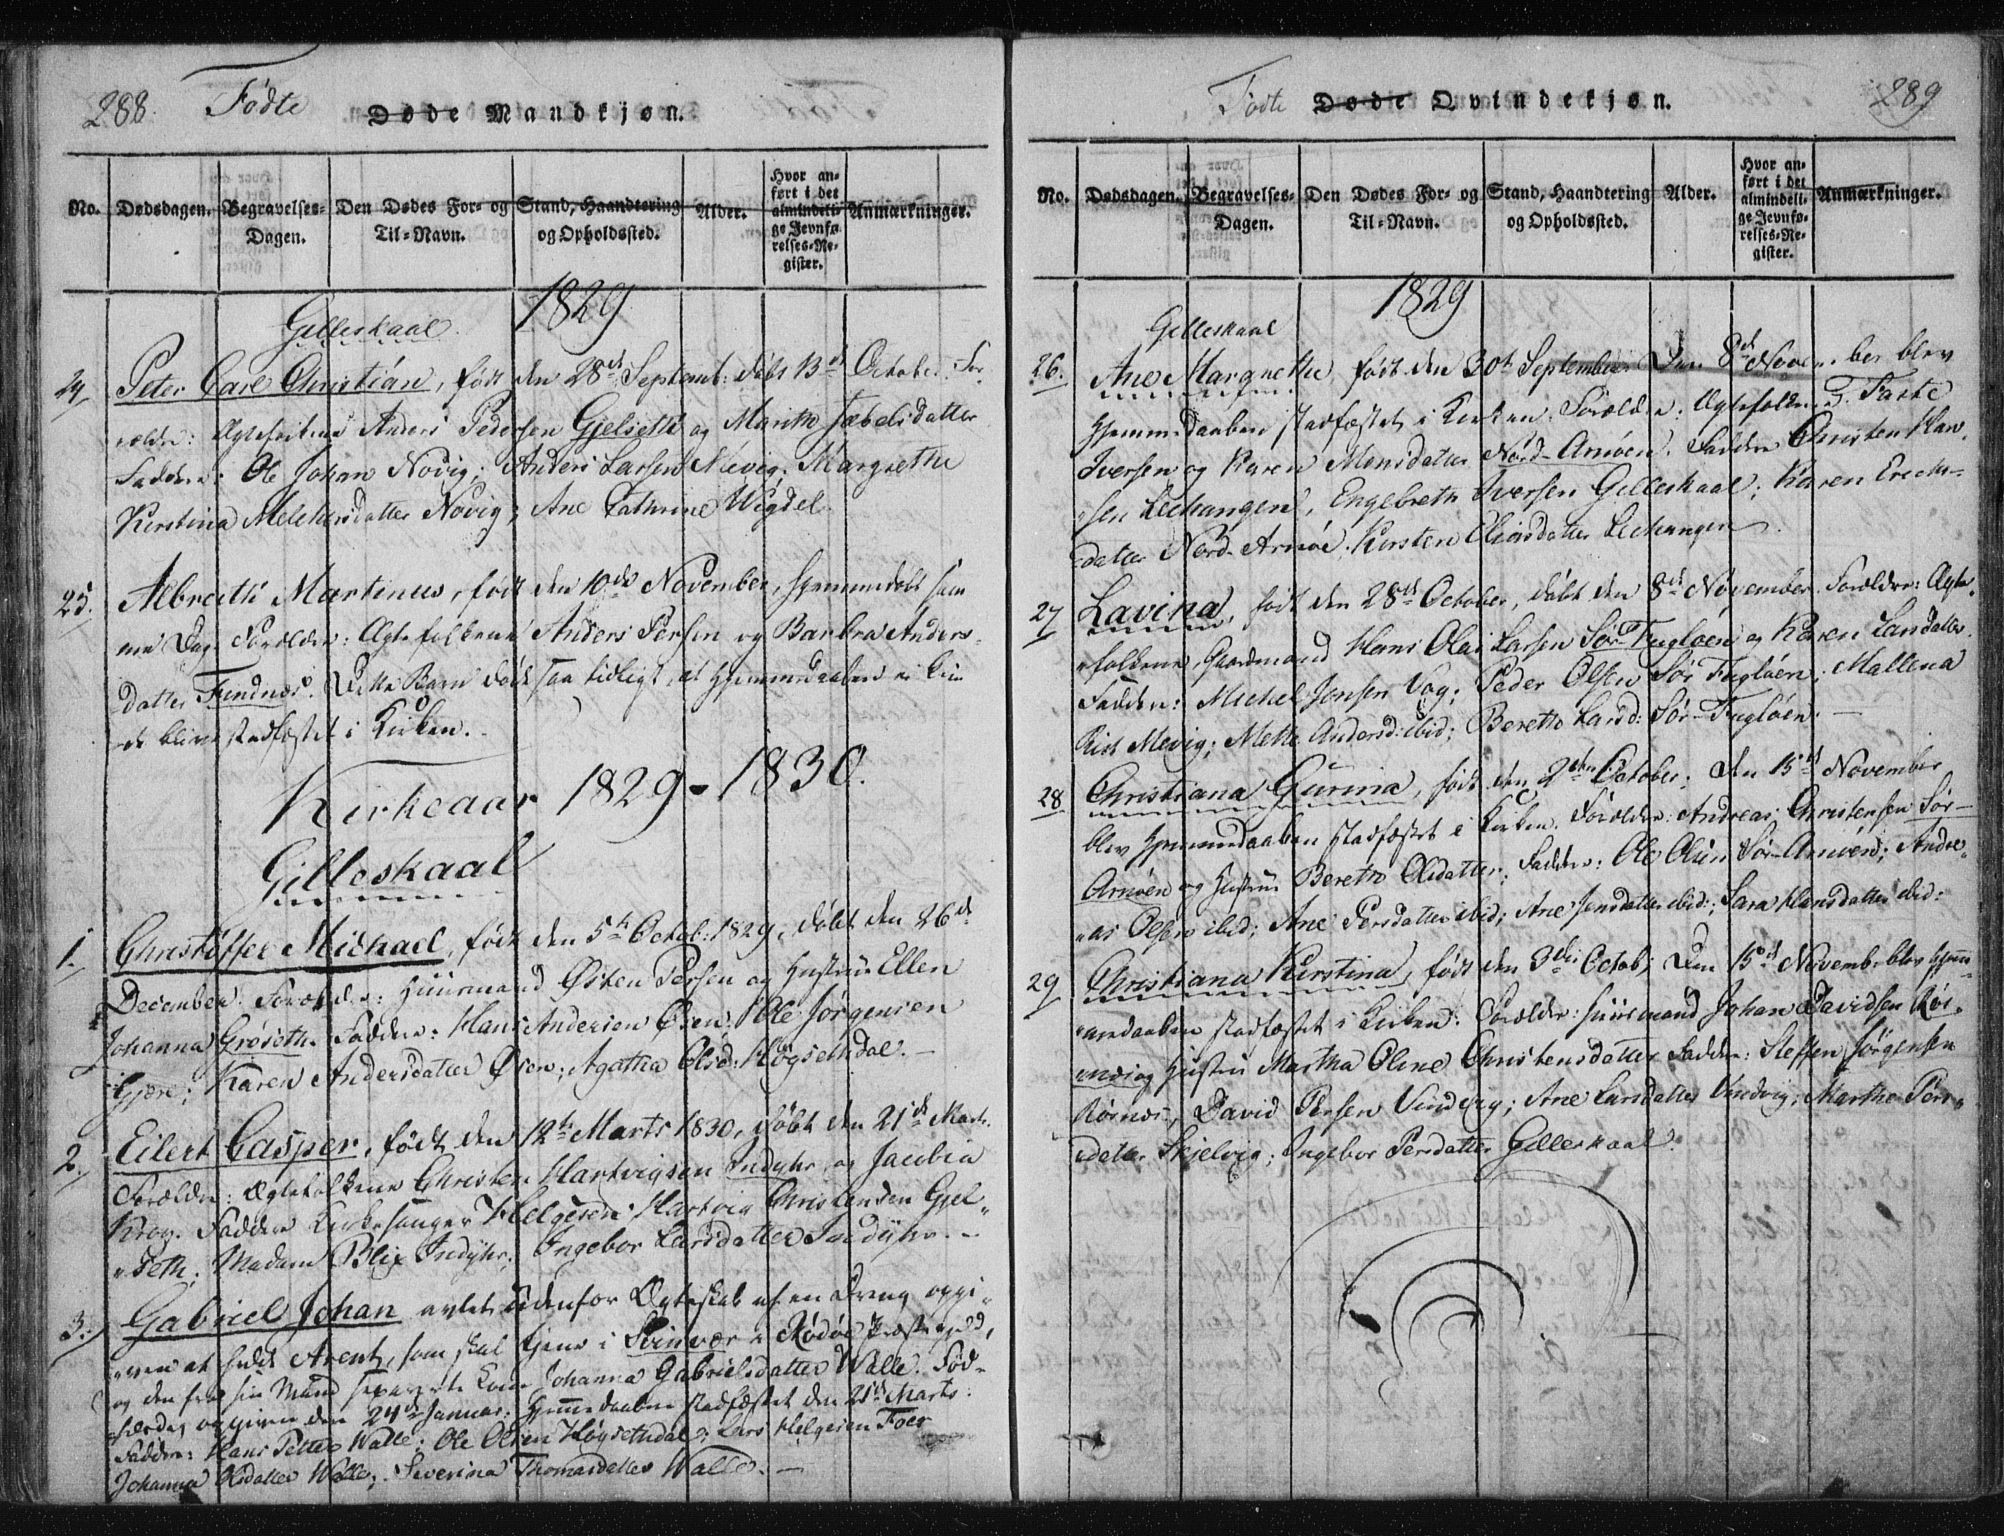 288. Fødte Døde Mandkjøn.
No. Dødsdagen. Begravelses-Dagen. Den Dødes For- og Til-Navn. Stand, Haandtering og Opholdssted. Alder. Hvor anført i det almindelige Jevnførelses-Register. Anmærkninger.
1829
Gilleskaal
24 Peter Carl Christian, født den 28de Septemb: døbt 13de October. For-
ældre: Anders Pedersen Gjelseth og Marith Jæbelsdatter
Faddere: Ole Johan Novig; Anders Larsen Mevig; Margrethe
Kirstina Melchersdatter Novig; Ane Cathrine Wigdel.
25. Albreth Martinus, født den 10de November, hjemmedøbt sam-
me Dag. Forældre: Ægtefolkene Anders Persen og Barbra Anders-
datter Findnæs. Dette Barn døde saa tidligt, at Hjemmedaaben ei kun-
de blive stadfæstet i Kirken.
Kirkeaar 1829-1830.
Gilleskaal
1. Christoffer Michael, født den 5te Octob: 1829, døbt den 26de
December. Forældre: Huusmand Østen Persen og Hustrue Ellen
Johanna Grøseth. Faddere: Hans Andersen Øsen; Ole Jørgensen
Gjære; Karen Andersdatter Øsen; Agatha Olsd: Høgsethdal.
2. Eilert Casper, født den 12te Marts 1830, døbt den 21de Marts.
Forældre: Ægtefolkene Christen Hartvigsen Indyhr og Jacobia
Krog. Faddere Kirkesanger Helgesen; Hartvig Christensen Gjel-
seth; Madam Blix Indyhr; Ingebor Larsdatter Indyhr.
3. Gabriel Johan avlet udenfor Ægteskab af en Dreng opgi-
ven at hedde Arent, som skal tjene i Svinvær i Rødøe Præstegjeld,
og den fra sin Mand separerte Kone Johanna Gabrielsdatter Walle. Fød-
selsdag opgiven den 24de Januar. Hjemmedaaben stadfæstet den 21de Marts.
Faddere: Hans Petter Walle; Ole Olsen Høgsethdal; Lars Helgesen Foer
Johanna Olsdatter Walle; Severina Thomasdatter Walle.
Fødte Døde Qvindekjøn. 289
No. Dødsdagen. Begravelses-Dagen. Den Dødes For- og Til-Navn. Stand, Haandtering og Opholdssted. Alder. Hvor anført i det almindelige Jevnførelses-Register. Anmærkninger.
1829
Gilleskaal
26. Ane Margrethe født den 30te September. Den 8de November blev
Hjemmedaaben stadfæstet i Kirken. Forældre: Ægtefolkene Taate
Iversen og Karen Monsdatter Nord-Arnøen. Faddere Christen Han-
sen Leehangen, Engebreth Iversen Gilleskaal; Karen Erechs-
datter Nord-Arnøe. Kirsten Oliansdatter Leehangen.
27 Lavina, født den 28de October, døbt den 8de November. Forældre: Ægte-
folkene, Gaardmand Hans Olai Larsen Sør Fugløen og Karen Larsdatter.
Faddere: Michel Jensen Vag; Peder Olsen Sør Fugløen; Mallena
Rist Mevig; Mette Andersd: ibid; Berette Larsd: Sør-Fugløen.
28. Christiana Gurina, født den 2den October. Den 15de November
blev Hjemmedaaben stadfæstet i Kirken. Forældre: Andreas Christensen Sør-
Arnøen og Hustrue Berette Olsdatter. Faddere: Ole Olsen Sør-Arnøen; Andre-
as Olsen ibid; Ane Persdatter ibid; Ane Jensdatter ibid; Sara Hansdatter ibid:
29 Christiana Kirstina, født den 3die Octob; Den 15de Novemb: blev Hjem-
medaaben stadfæstet i Kirken. Forældre: Huusmand Johan Davidsen Rør-
næs og Hustrue Martha Oline Christensdatter. Faddere: Steffen Jørgensen
Rørnæs, David Persen Vindvig; Ane Larsdatter Vindvig; Marthe Pers-
datter Skjelvig; Ingebor Persdatter Gilleskaal.